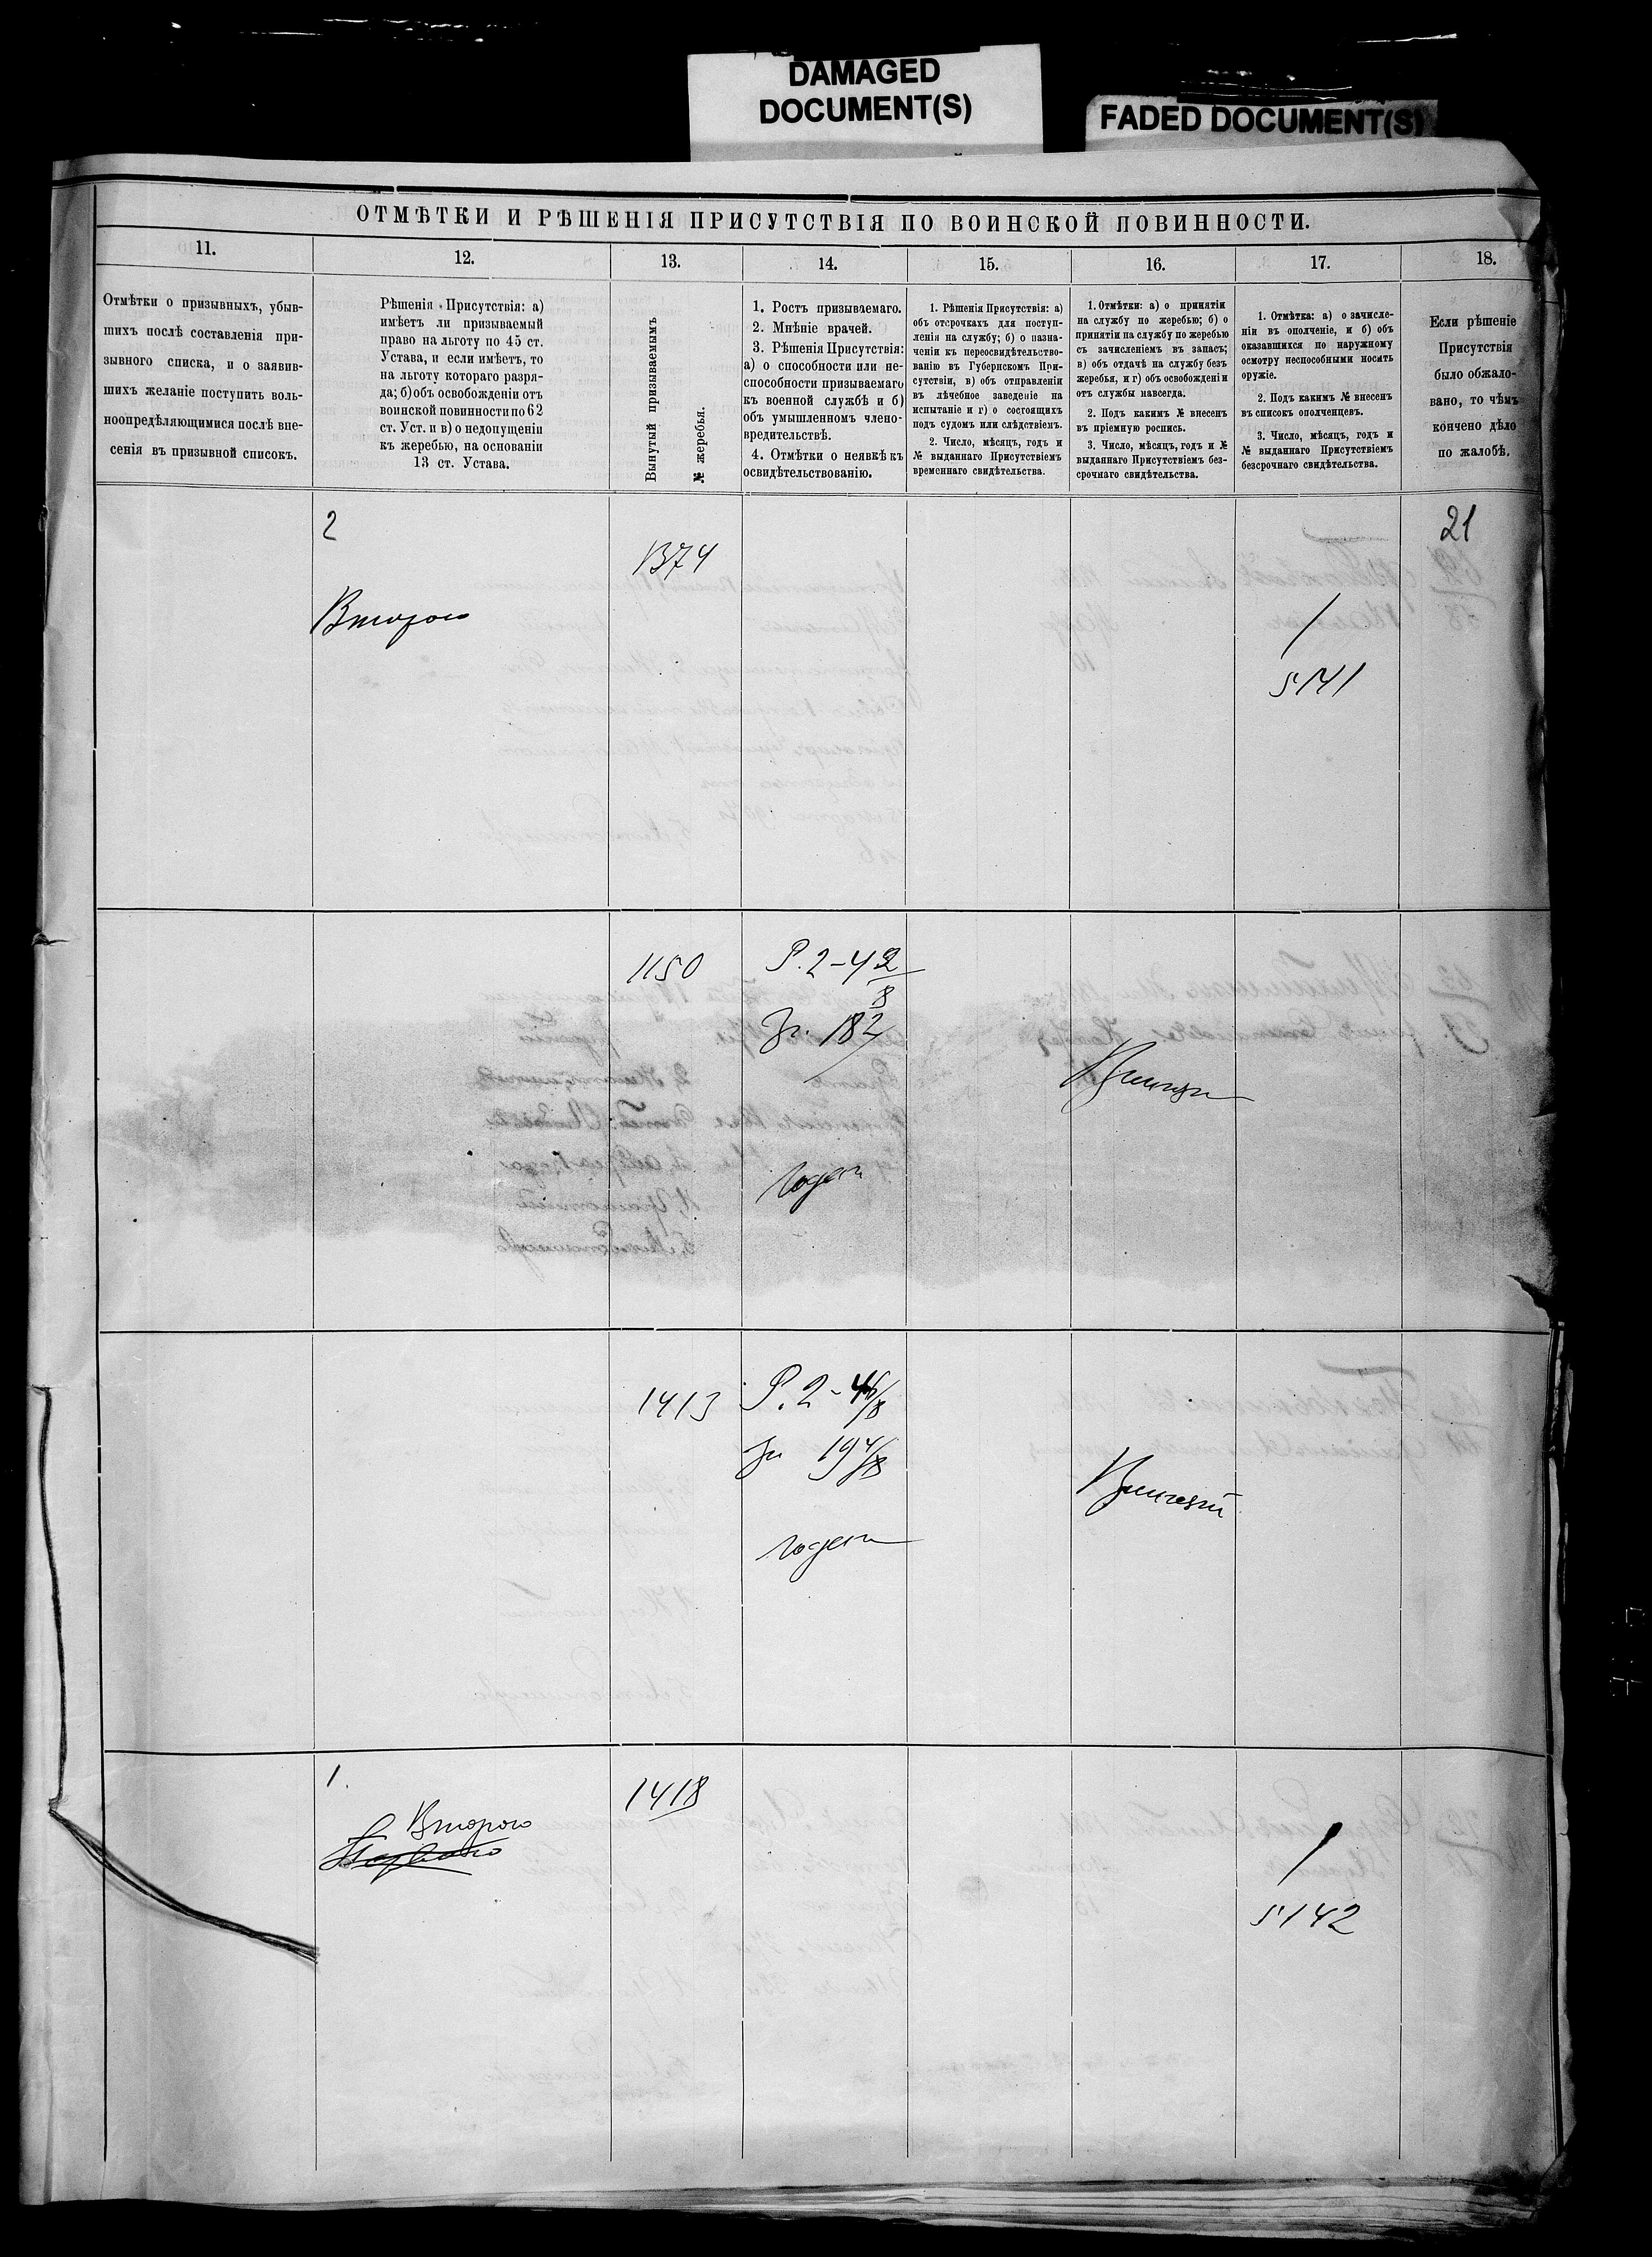 DAMAGED
DOCUMENT(S)
FADED DOCUMENT(S)
ОТМѢТКИ И РѢШЕНІЯ ПРИСУТСТВІЯ ПО ВОИНСКОЙ ПОВИННОСТИ.
11.
12.
13.
14.
15.
16.
17.
18.
Отмѣтки о призывныхъ, убыв-
шихъ послѣ составленія при-
зывного списка, и о заявив-
шихъ желаніе поступить воль-
ноопредѣляющимися послѣ вне-
сенія въ призывной списокъ.
Рѣшенія Присутствія: а)
имѣетъ ли призываемый
право на льготу по 45 ст.
Устава, и если имѣетъ, то
на льготу котораго разря-
да; б) объ освобожденіи отъ
воинской повинности по 62
ст. Уст. и в) о недопущеніи
къ жеребью, на основаніи
13 ст. Устава.
Вынутый призываемымъ
№ жеребья.
1. Ростъ призываемаго.
2. Мнѣніе врачей.
3. Рѣшенія Присутствія:
а) о способности или не-
способности призываемаго
къ военной службѣ и б)
объ умышленномъ члено-
вредительствѣ.
4. Отмѣтки о неявкѣ къ
освидѣтельствованію.
1. Рѣшенія Присутствія: а)
объ отсрочкахъ для поступ-
ленія на службу; б) о назна-
ченіи къ переосвидѣтельство-
ванію въ Губернскомъ При-
сутствіи, в) объ отправленіи
въ лѣчебное заведеніе на
испытаніе и г) о состоящихъ
подъ судомъ или слѣдствіемъ.
2. Число, мѣсяцъ, годъ и
№ выданнаго Присутствіемъ
временнаго свидѣтельства.
1. Отмѣтки: а) о принятіи
на службу по жеребью; б) о
принятіи на службу по жеребью
съ зачисленіемъ въ запасъ;
в) объ отдачѣ на службу безъ
жеребья, и г) объ освобожденіи
отъ службы навсегда.
2. Подъ какимъ № внесенъ
въ пріемную роспись.
3. Число, мѣсяцъ, годъ и №
выданнаго Присутствіемъ без-
срочнаго свидѣтельства.
1. Отмѣтка: а) о зачисле-
ніи въ ополченіе, и б) объ
оказавшихся по наружному
осмотру неспособными носить
оружіе.
2. Подъ какимъ № внесенъ
въ списокъ ополченцевъ.
3. Число, мѣсяцъ, годъ и
№ выданнаго Присутствіемъ
безсрочнаго свидѣтельства.
Если рѣшеніе
Присутствія
было обжало-
вано, то чѣмъ
кончено дѣло
по жалобѣ.
2
1374
21
Второго
/
5141
1150
Р. 2-4 2/8
Гр. 18 2/
Принятъ
годенъ
1413
Р. 2-4 5/8
Гр 19 4/8
Принятый
годенъ
1.
1418
Второго
Перваго
/
5142